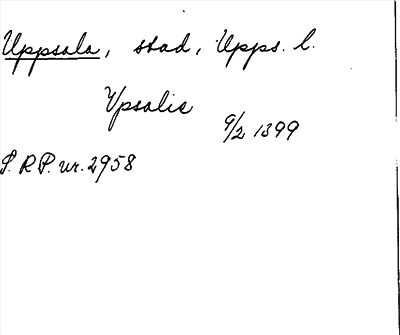 Uppsala, stad, Upps. l.
Vpsalie
9/2 1399
S.R.P. nr. 2958